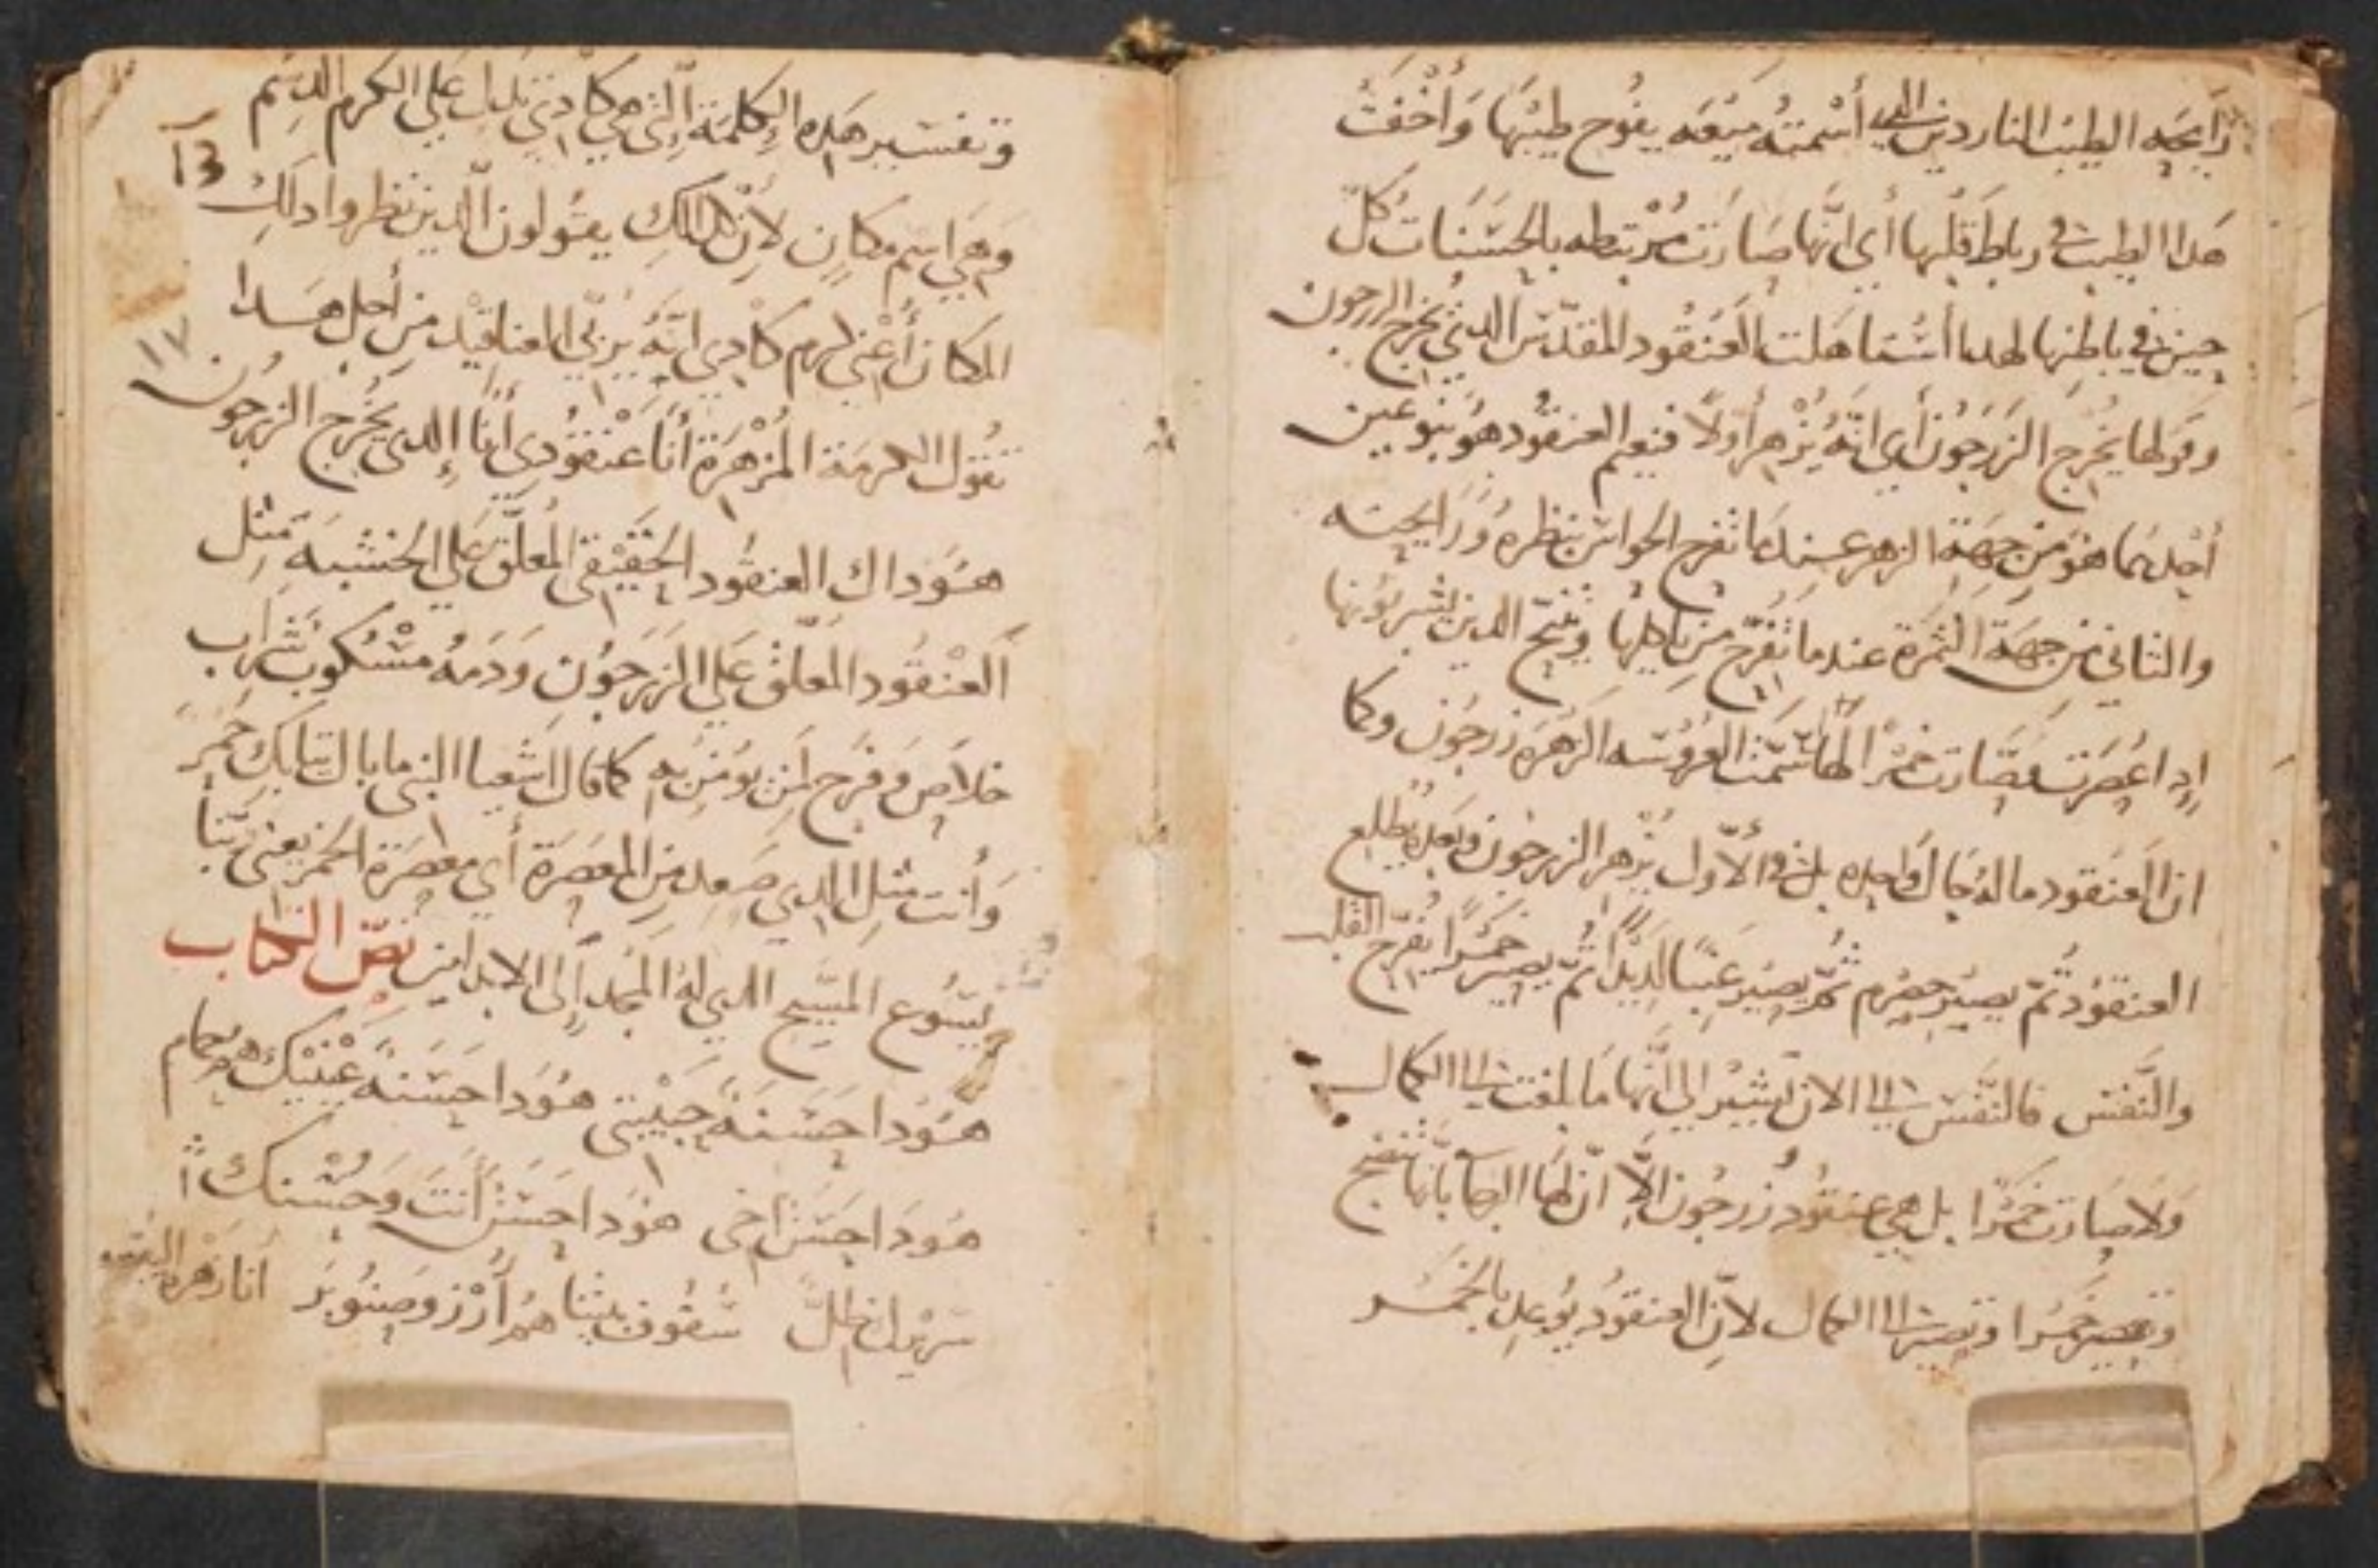 رايحه الطيب الناردين التي أسمته ميعه يفوح طيبها وأخفت
هدا الطيب في رباط قلبها أي انها صارت مرتبطه بالحسنات كل
حين في باطنها لهدا استاهلت العنقود المقدس الدي يخرج الزرجون
وقولها يخرج الزرجون أي انه يزهر أولا فنعم العنقود هو بنوعين
أحدهما هو من جهة الزهر عندما تفرح الحواس بنظره ورايحته
والثاني من جهة الثمرة عندما تفرح من ياكلها وتنيح الدين يشربونها
إدا عصرت وصارت خمرا لهدا سمت العروسه الزهره زرجون وكما
ان العنقود ما له حال واحده بل في الأول يزهر الزرجون وبعده يطلع
العنقود ثم يصير حصرم ثم يصير عنبا لديدا ثم يصير خمرا يفرح القلب
والنفس فالنفس الى الان تشير الى انها ما بلغت الى الكمال
ولا صارت خمرا بل هي عنقود زرجون إلا ان لها الرجا بأنها تنضج
وتصير خمرا وتصير الى الكمال لان العنقود يوعد بالخمر
وتفسير هده الكلمة التي هي كادي تدل على الكرم الدسم
13
وهي اسم مكان لأن هنالك يقولون الدين نظروا دلك
١٧
المكان أعني كرم كادي انه يربي العناقيد من أجل هدا
تقول الكرمة المزهرة أنا عنقودي أنا الدي يخرج الزرجون
هودا ك العنقود الحقيقي المعلق على الخشبة مثل
العنقود المعلق على الزرجون ودمه مسكوب شراب
خلاص وفرح لمن يومن به كما قال اشعيا النبي ما بال تيابك حمر
وأنت مثل الدي صعد من المعصرة أي معصرة الخمر يعني ربنا
يسوع المسيح الدي له المجد إلى الابد امين نص الكتاب
هودا حسنة حبيبتي هودا حسنة عينيك هم حمام
هودا حسن اخي هودا حسن أنت وحسنك
سريرنا ظل سقوف بيتنا هم أرز وصنوبر أنا زهرة